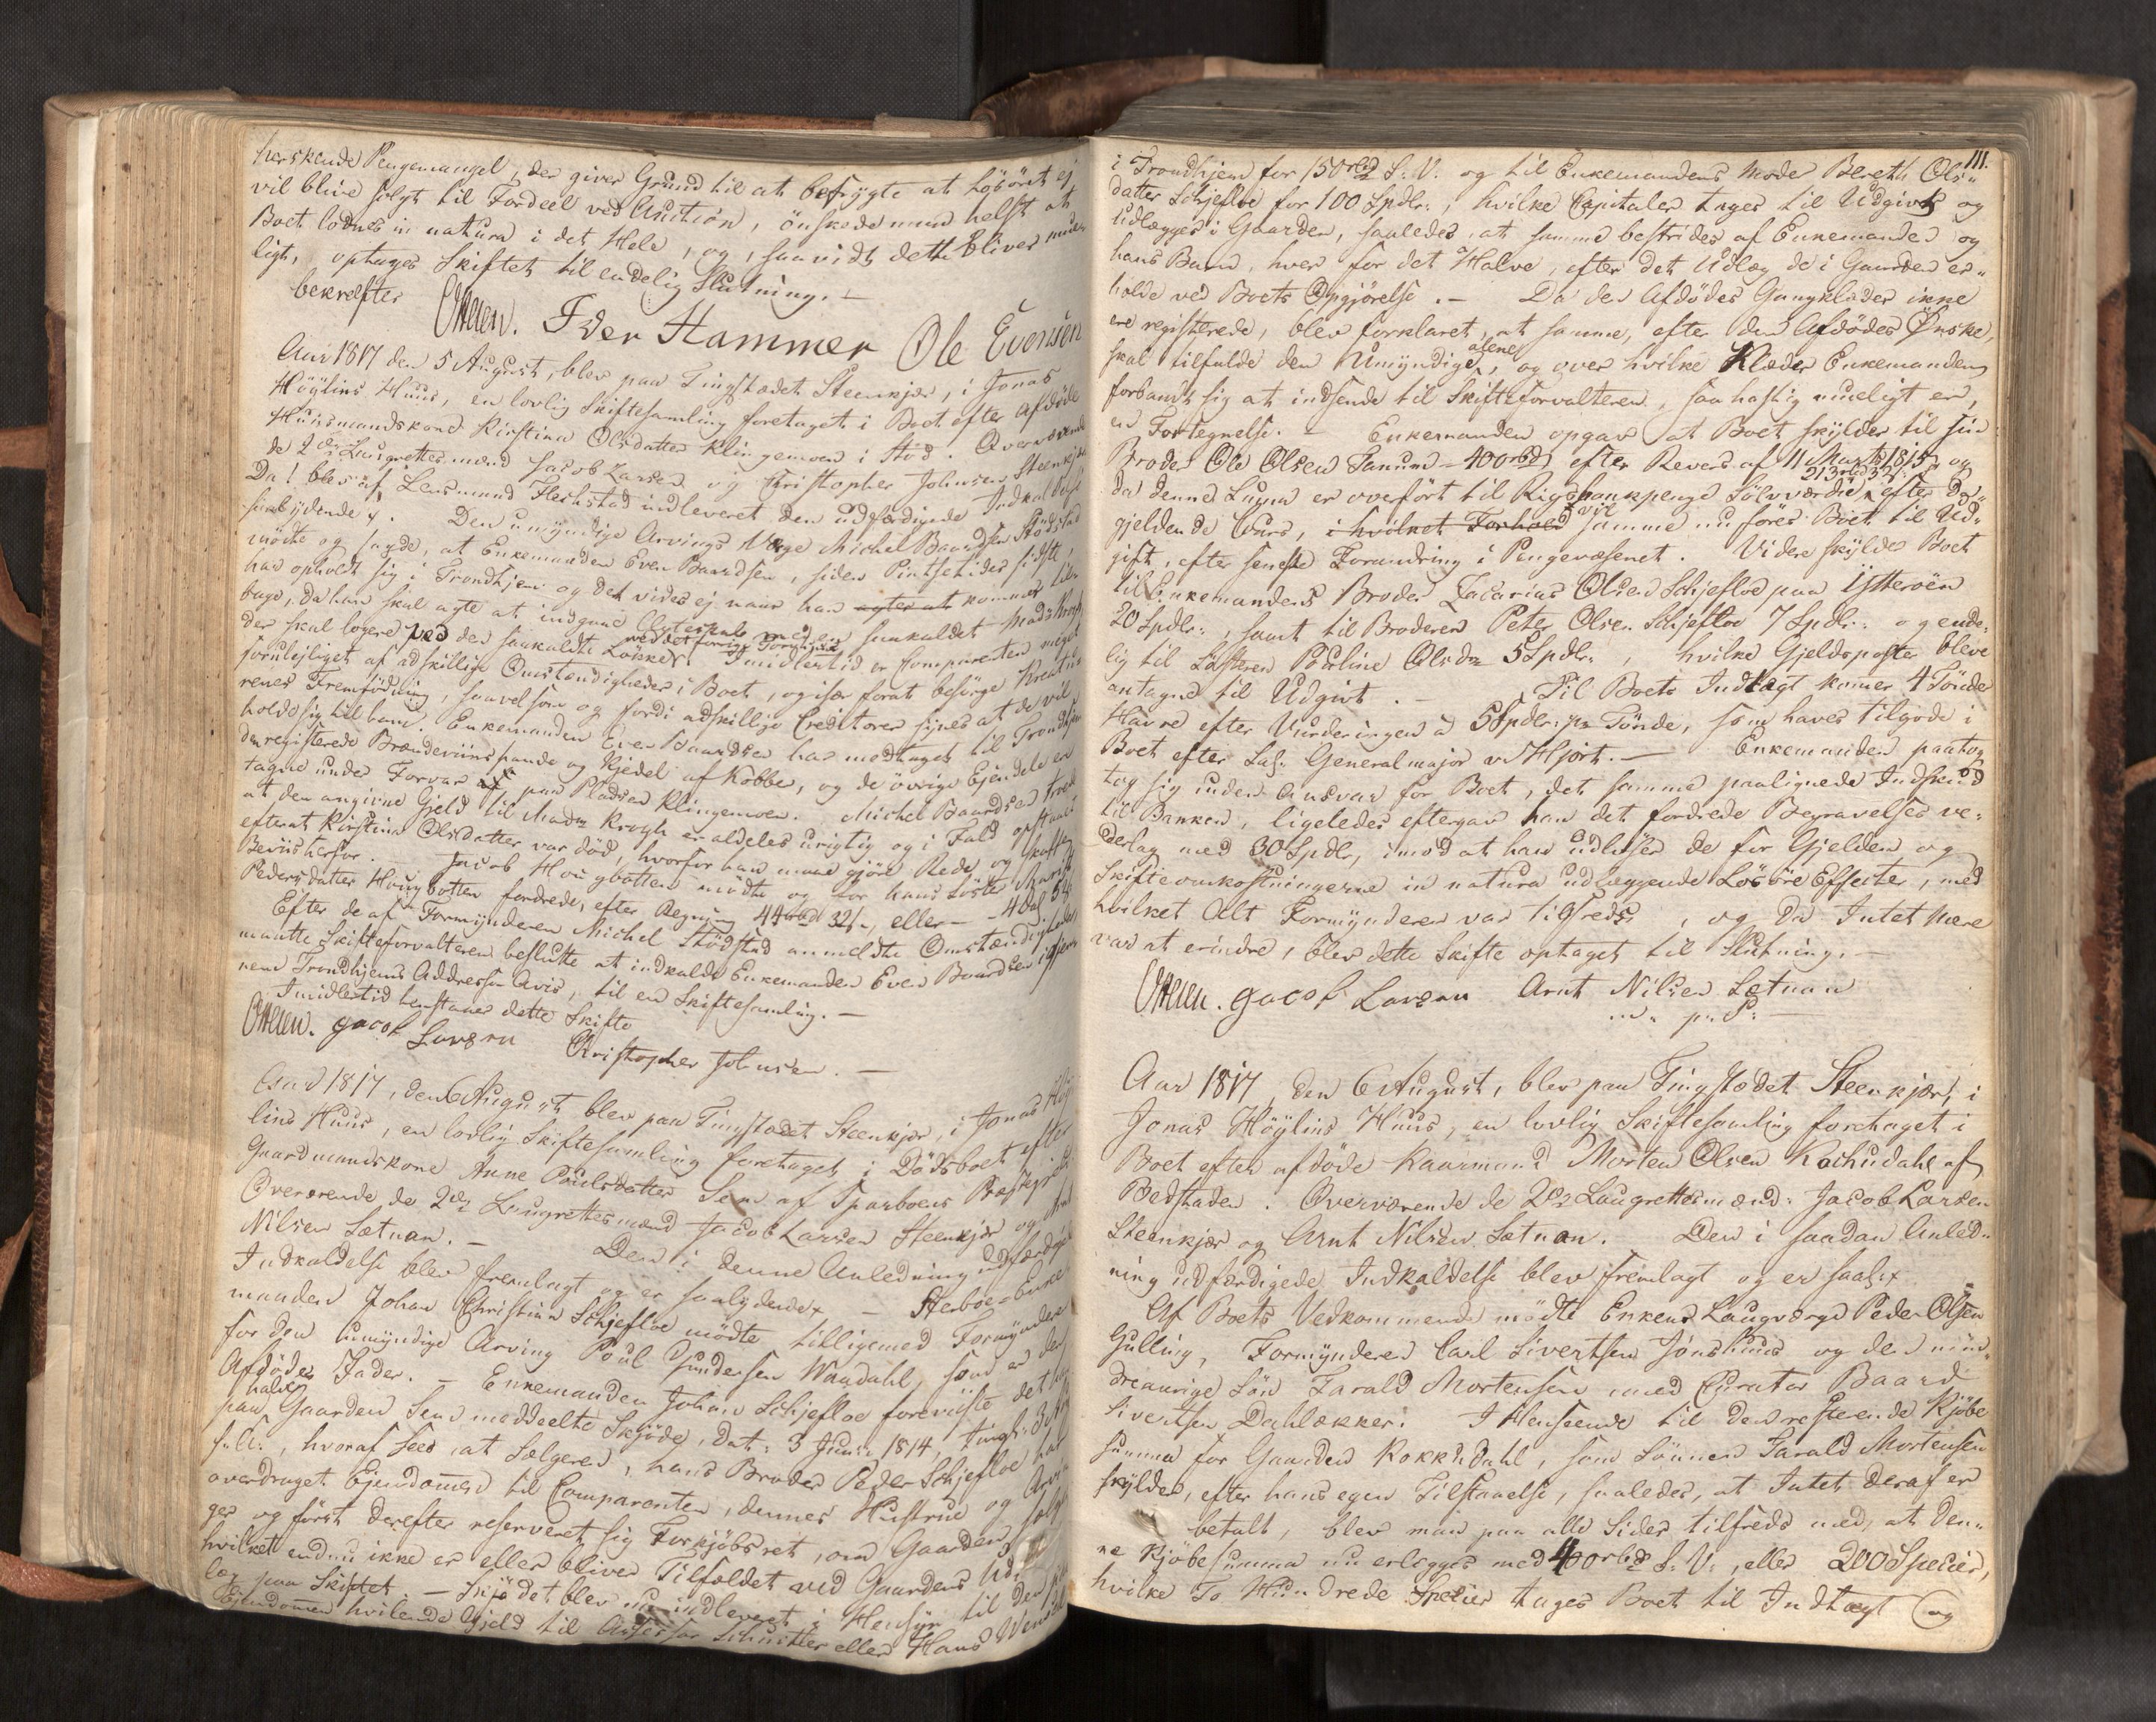 herskende Pengemangel, der giver Grund til at befrygte at Lösöret ej
vil blive solgt til Fordeel ved Auction, önskede man helst at
Boet lodnes in natura i det Hele, og, saavidt dette bliver mue-
ligt, optages Skiftet til endelig Slutning. —
bekræfter
Ottesen. Iver Hammer Ole Evensen
Aar 1817 den 5 August, blev paa Tingstædet Steenkjær, i Jonas
Höÿlins Huus, en lovlig Skiftesamling foretaget i Boet efter afdöde
Huusmandskone Kirstina Olsdatter Klingemoen i Stod. Overværende
de 2de Laugrettesmænd Jacob Larsen og Christopher Johnsen Steenkjær
Da! blev af Lensmand Flekstad indleveret den udfærdigede Indkaldelse
saalydende #. Den umÿndige Arvings Værge Michel Baardsen Stödstad
mödte og sagde, at Enkemanden Even Baardsen, siden Pintsetider sidste,
har opholdt sig i Trondhjem og det vides ej naar han agter at kommer til-
bage, da han skal agte at indgaae Ægteskab med en saakaldet Mads Krogh,
der skal logere ved det saakaldte
Imidlertid er Comparenten meget
forulejliget af adskillige Omstændigheder i Boet, og især forat besörge Kreatu-
renes Fremfödning, saavelsom og fordi adskillige Creditorer sÿnes at de vil
holde sig til ham. Enkemanden Even Baardsen har medtaget til Trondhjem
den registerede Brændeviinspande og Kjedel af Kobber, og de övrige Ejendele er
tagne under Forvar paa Pladsen Klingemoen. Michel Baardsen troer
at den angivne Gjeld til Madm Krogh er aldeles urigtig og i Fald opstaaet
efterat Kirstina Olsdatter var död, hvorfor han maae gjöre Rede og skaffe
Beviis herfor. — Jacob Hougbotten mödte og for hans Söster Marith
Pedersdatter Hougbotten fordrede, efter Regning 44 rbd 32 s, eller — 4 Dal 54 s
Efter de af Formÿnderen Michel Stödstad anmeldte Omstændigheder
maatte Skifteforvalteren beslutte at indkalde Enkemanden Even Baardsen igjen-
nem Trondhjems Addresse Avis, til en Skiftesamling. —
Imidlertid henstaaer dette Skifte
Ottesen. Jacob Larsen Christopher Johnsen. —
Aar 1817, den 6 August blev paa Tingstædet Steenkjær, i Jonas Höÿ-
lins Huus, en lovlig Skiftesamling foretaget i Dödsboet efter
Gaardmandskone Anne Poulsdatter Sem af Sparboens Præstegield
Overværende de 2de Laugrettesmænd Jacob Larsen Steenkjær og Arnt
Nilsen Sætnan. — Den i denne Anledning udfærdigede
Indkaldelse blev fremlagt og er saalydende # — Sterboe-Enke-
manden Johan Christian Schjefloe mödte tilligemed Formÿnderen
for den umÿndige Arving Poul Gundersen Waadahl, som er den
Afdödes Fader. — Enkemanden Johan Schjefloe foreviiste det ham
halve
paa Gaarden Sem meddeelte Skjöde, dat: 3 Junii 1814, tingl:
s. A:, hvoraf sees, at Sælgeren, hans Broder Peder Schjefloe har
overdraget Eiendommen til Comparenten, dennes Hustrue og Arvin-
ger og först derefter reserveret sig Forkjöbsret, om Gaarden sælges
hvilket endnu ikke er eller bliver Tilfældet ved Gaardens Ud-
læg paa Skiftet. — Skjödet blev nu indleveret i Hensÿn til den paa
Eiendommen hvilende Gield til Assessor Schnitler eller Hans
111.
i Trondhjem for 150 rbd S. V. og til Enkemandens Moder Bereth Ols-
datter Schjefloe for 100 Spdlr:, hvilke Capitaler tages til Udgivt og
udlægges i Gaarden, saaledes at samme bestrides af Enkemanden og
hans Barn, hver for det Halve, efter det Udlæg de i Gaarden er-
holde ved Boets Opgjörelse. — Da den Afdödes Gangklæder ikke
ere registerede, blev forklaret, at samme, efter den Afdödes Önske,
alene
skal tilfalde den Umyndige, og over hvilke Klæder Enkemanden
forbandt sig at indsende til Skifteforvalteren, saa hastig mueligt er,
en Fortegnelse. — Enkemanden opgav at Boet skÿlder til sin
Broder Ole Olsen Tanum — 400 rbd, efter Revers af 11 Marts 1815, og
da denne Summa er overfört til Rigsbankpenge Sölvværdie efter da-
gjeldende Cours, i hvilket Forhold vil samme nu föres Boet til Ud-
gift, efter seneste Forandring i Pengevæsenet. Videre skÿlder Boet
til Enkemandens Broder Zacarias Olsen Schjefloe paa Ÿtteröen
20 Spdlr:, samt til Broderen Peter Olsen Schjefloe 7 Spdlr: og ende-
lig til Sösteren Pouline Olsdr 5 Spdlr:, hvilke Gjeldsposter bleve
antagne til Udgivt. — Til Boets Indtægt kommer 4 Tönde
Havre efter Vurderingen à 5 Spdlr: pr Tönde, som haves tilgode i
Boet efter Sal: Generalmajor v. Hjort. — Enkemanden paatog
tog sig uden Ansvar for Boet, det samme paalignede Indskud
til Banken, ligeledes eftergav han det fordrede Begravelses ve-
derlag med 30 Spdlr, imod at han udlöser de for Gjelden og
Skifteomkostningerne in natura udlæggende Lösöre Effecter, med
hvilket Alt Formÿnderen var tilfreds, og da Intet mere
var at erindre, blev dette Skifte optaget til Slutning. —
Ottesen. Jacob Larsen Arnt Nilsen Sætnan
m. p. P.
Aar 1817, den 6 August, blev paa Tingstædet Steenkjær, i
Jonas Höÿlins Huus, en lovlig Skiftesamling foretaget i
Boet efter afdöde Kaarmand Morten Olsen Kochudahl af
Bedstaden. Overværende de 2de Laugrettesmænd: Jacob Larsen
Steenkjær og Arnt Nilsen Sætnan. Den i saadan Anled-
ning udfærdigede Indkaldelse blev fremlagt og er saal: #
Af Boets Vedkommende mödte Enkens Laugværge Peder Olsen
Gulling, Formÿnderen Carl Sivertsen Jönshuus og den mind-
dreaarige Sön Tarald Mortensen med Curator Baard
Sivertsen Dahlækker. I Henseende til den resterende Kjöbe
summa for Gaarden Kokkudahl, som Sönnen Tarald Mortensen
skÿlder, efter hans egen Tilstaaelse, saaledes, at Intet deraf er
betalt, blev man paa alle Sider tilfreds med, at den-
ne Kjöbesumma nu erlægges med 400 rbd S. V., eller 200 Specier,
hvilke To Hundrede Specier tages Boet til Indtægt og